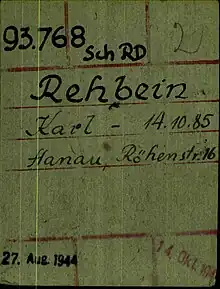 93.768 Sch RD
Rehbein
Karl - 14.10.85
Hanau, Röhenstr. 16
27. Aug. 1944
14. OKT.